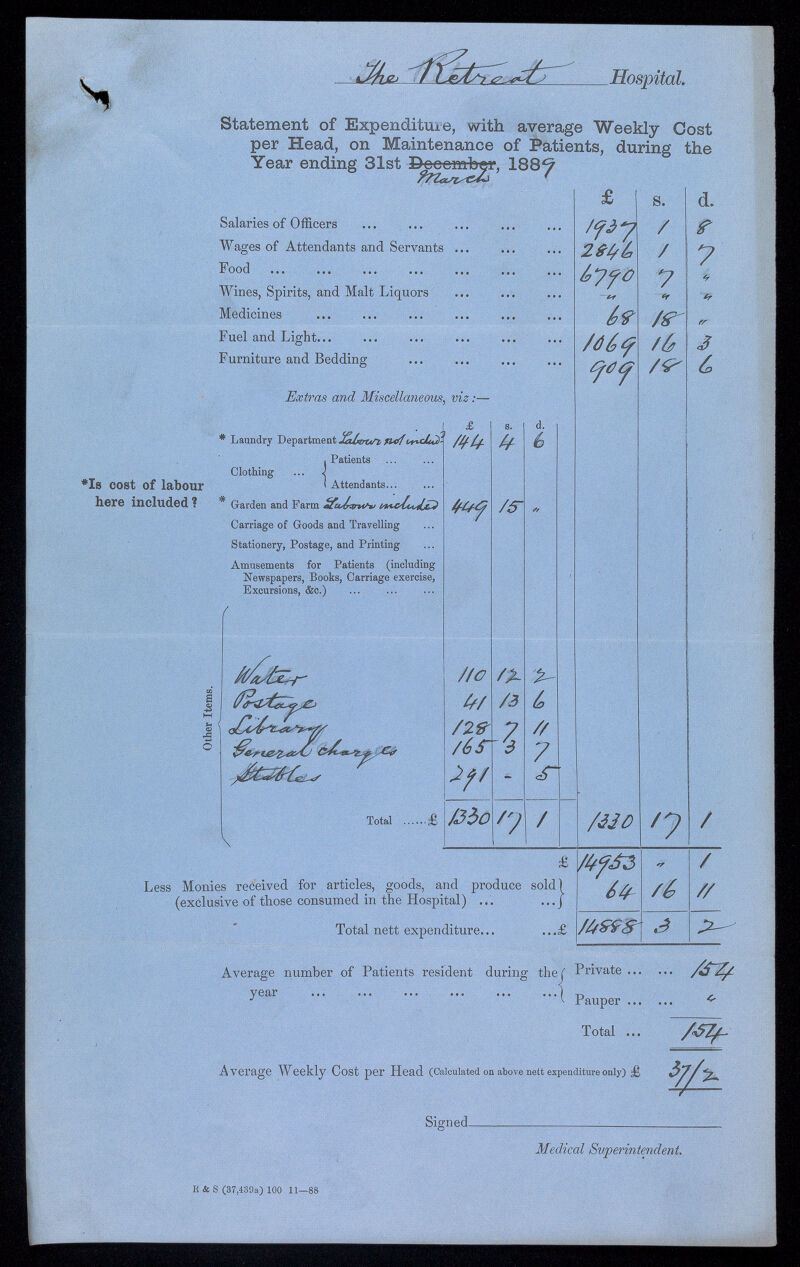 The Retreat Hospital.
Statement of Expenditure, with average Weekly Cost
per Head, on Maintenance of Patients, during the
Year ending 31st December, 1889
March
£ s. d.
Salaries of Officers ... ... ... ... ... 1937 1 8
Wages of Attendants and Servants ... ... ... 2846 1 7
Food ... ... ... ... ... ... ... 6790 7 "
Wines, Spirits, and Malt Liquors ... ... ... " " "
Medicines ... ... ... ... ... ... 68 18 "
Fuel and Light... ... ... ... ... ... 1069 16 3
Furniture and Bedding ... ... ... ... 909 18 6
Extras and Miscellaneous, viz :—
£ s. d.
* Laundry Department Labour not includd? 144 4 6
Clothing ... { Patients ... ...
Attendants... ...
*Is cost of labour
here included?
* Garden and Farm Labour included 449 15 "
Carriage of Goods and Travelling ...
Stationery, Postage, and Printing ...
Amusements for Patients (including
Newspapers, Books, Carriage exercise,
Excursions, &c.) ... ... ...
Other Items.
Water 110 12 2
Postage 41 13 6
Library 128 7 11
General charges 165 3 7
Stables 291 - 5
Total ......£ 1330 17 1 1330 17 1
£ 14953 " 1
Less Monies received for articles, goods, and produce sold }
(exclusive of those consumed in the Hospital) ... ... } 64 16 11
Total nett expenditure... ...£ 14888 3 2
Average number of Patients resident during the { Private ... ... 154
year ... ... ... ... ... ... { Pauper ... ... "
Total ... 154
Average Weekly Cost per Head (Calculated on above nett expenditure only) £ 37/2
Signed
Medical Superintendent.
R & S (37,439a) 100 11—88